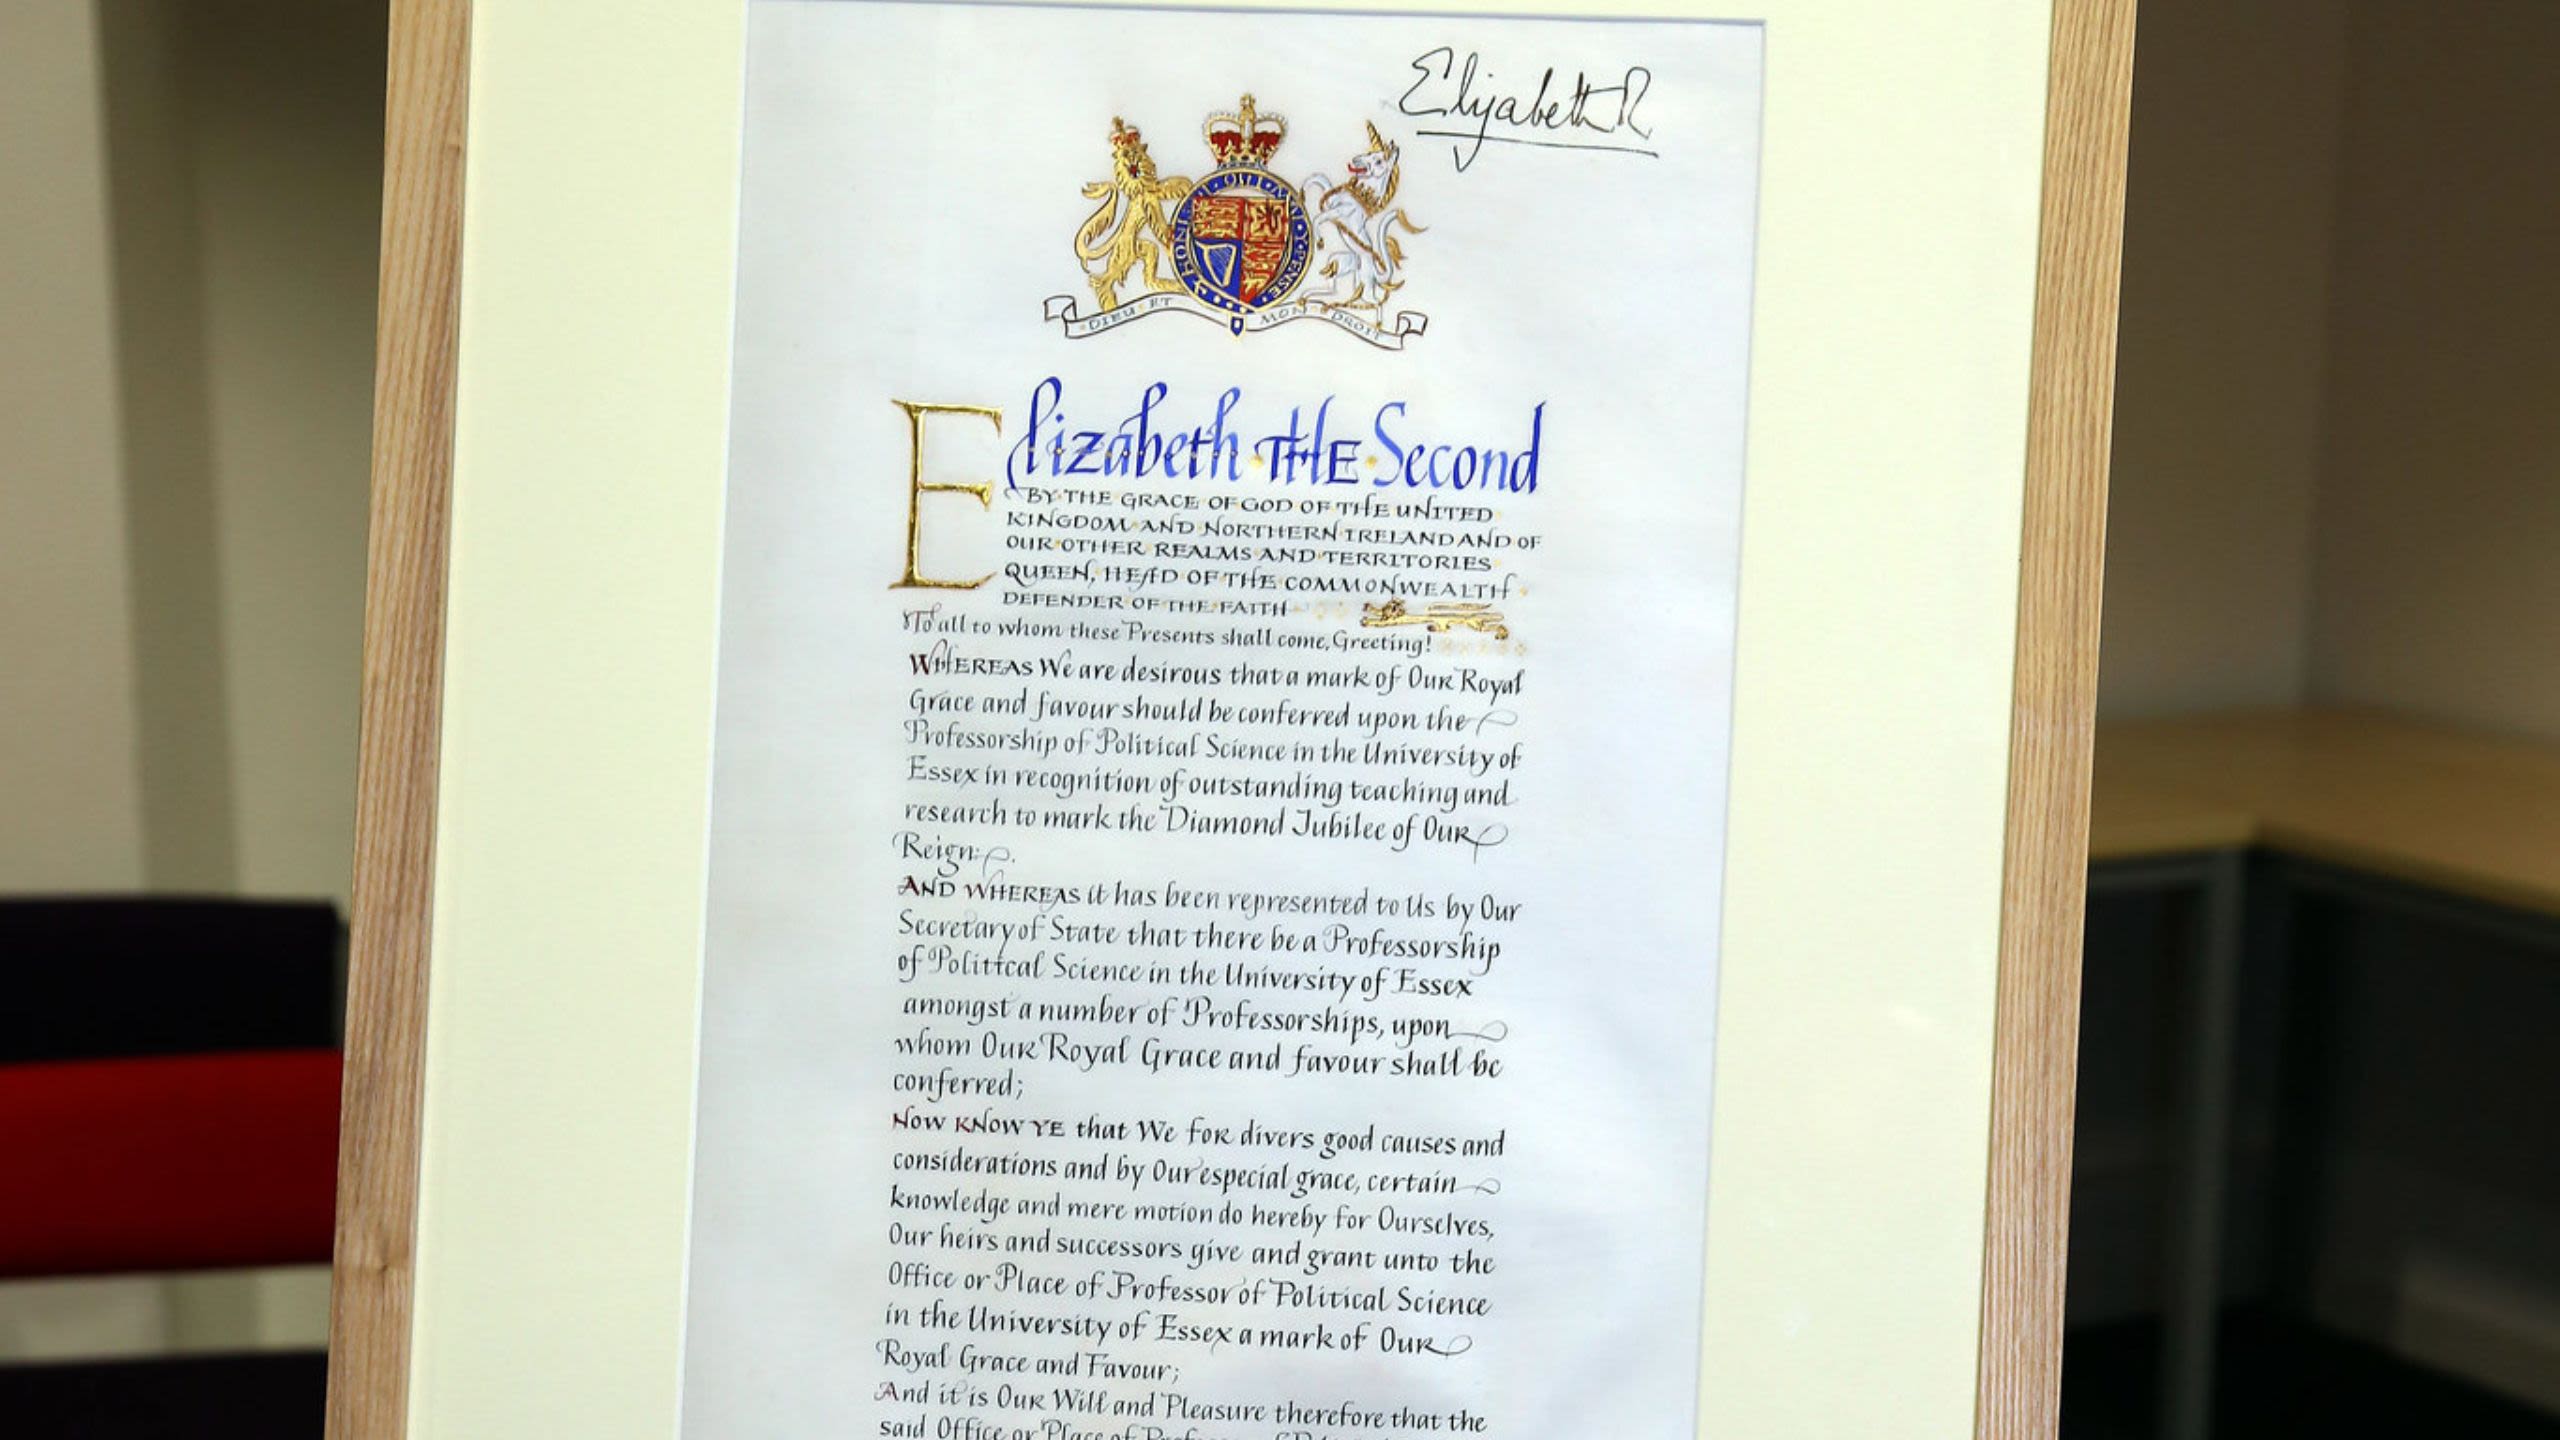 Elizabeth R
HONI SOIT QUI MAL Y PENSE
DIEU ET MON DROIT
Elizabeth THE Second
BY THE GRACE OF GOD OF THE UNITED
KINGDOM AND NORTHERN IRELAND AND OF
OUR OTHER REALMS AND TERRITORIES
QUEEN, HEAD OF THE COMMONWEALTH
DEFENDER OF THE FAITH
To all to whom these Presents shall come, Greeting!
WHEREAS We are desirous that a mark of Our Royal
Grace and favour should be conferred upon the
Professorship of Political Science in the University of
Essex in recognition of outstanding teaching and
research to mark the Diamond Jubilee of Our
Reign:
AND WHEREAS it has been represented to Us by Our
Secretary of State that there be a Professorship
of Political Science in the University of Essex
amongst a number of Professorships, upon
whom Our Royal Grace and favour shall be
conferred;
NOW KNOW YE that We for divers good causes and
considerations and by Our especial grace, certain
knowledge and mere motion do hereby for Ourselves,
Our heirs and successors give and grant unto the
Office or Place of Professor of Political Science
in the University of Essex a mark of Our
Royal Grace and Favour;
And it is Our Will and Pleasure therefore that the
said Office or Place of